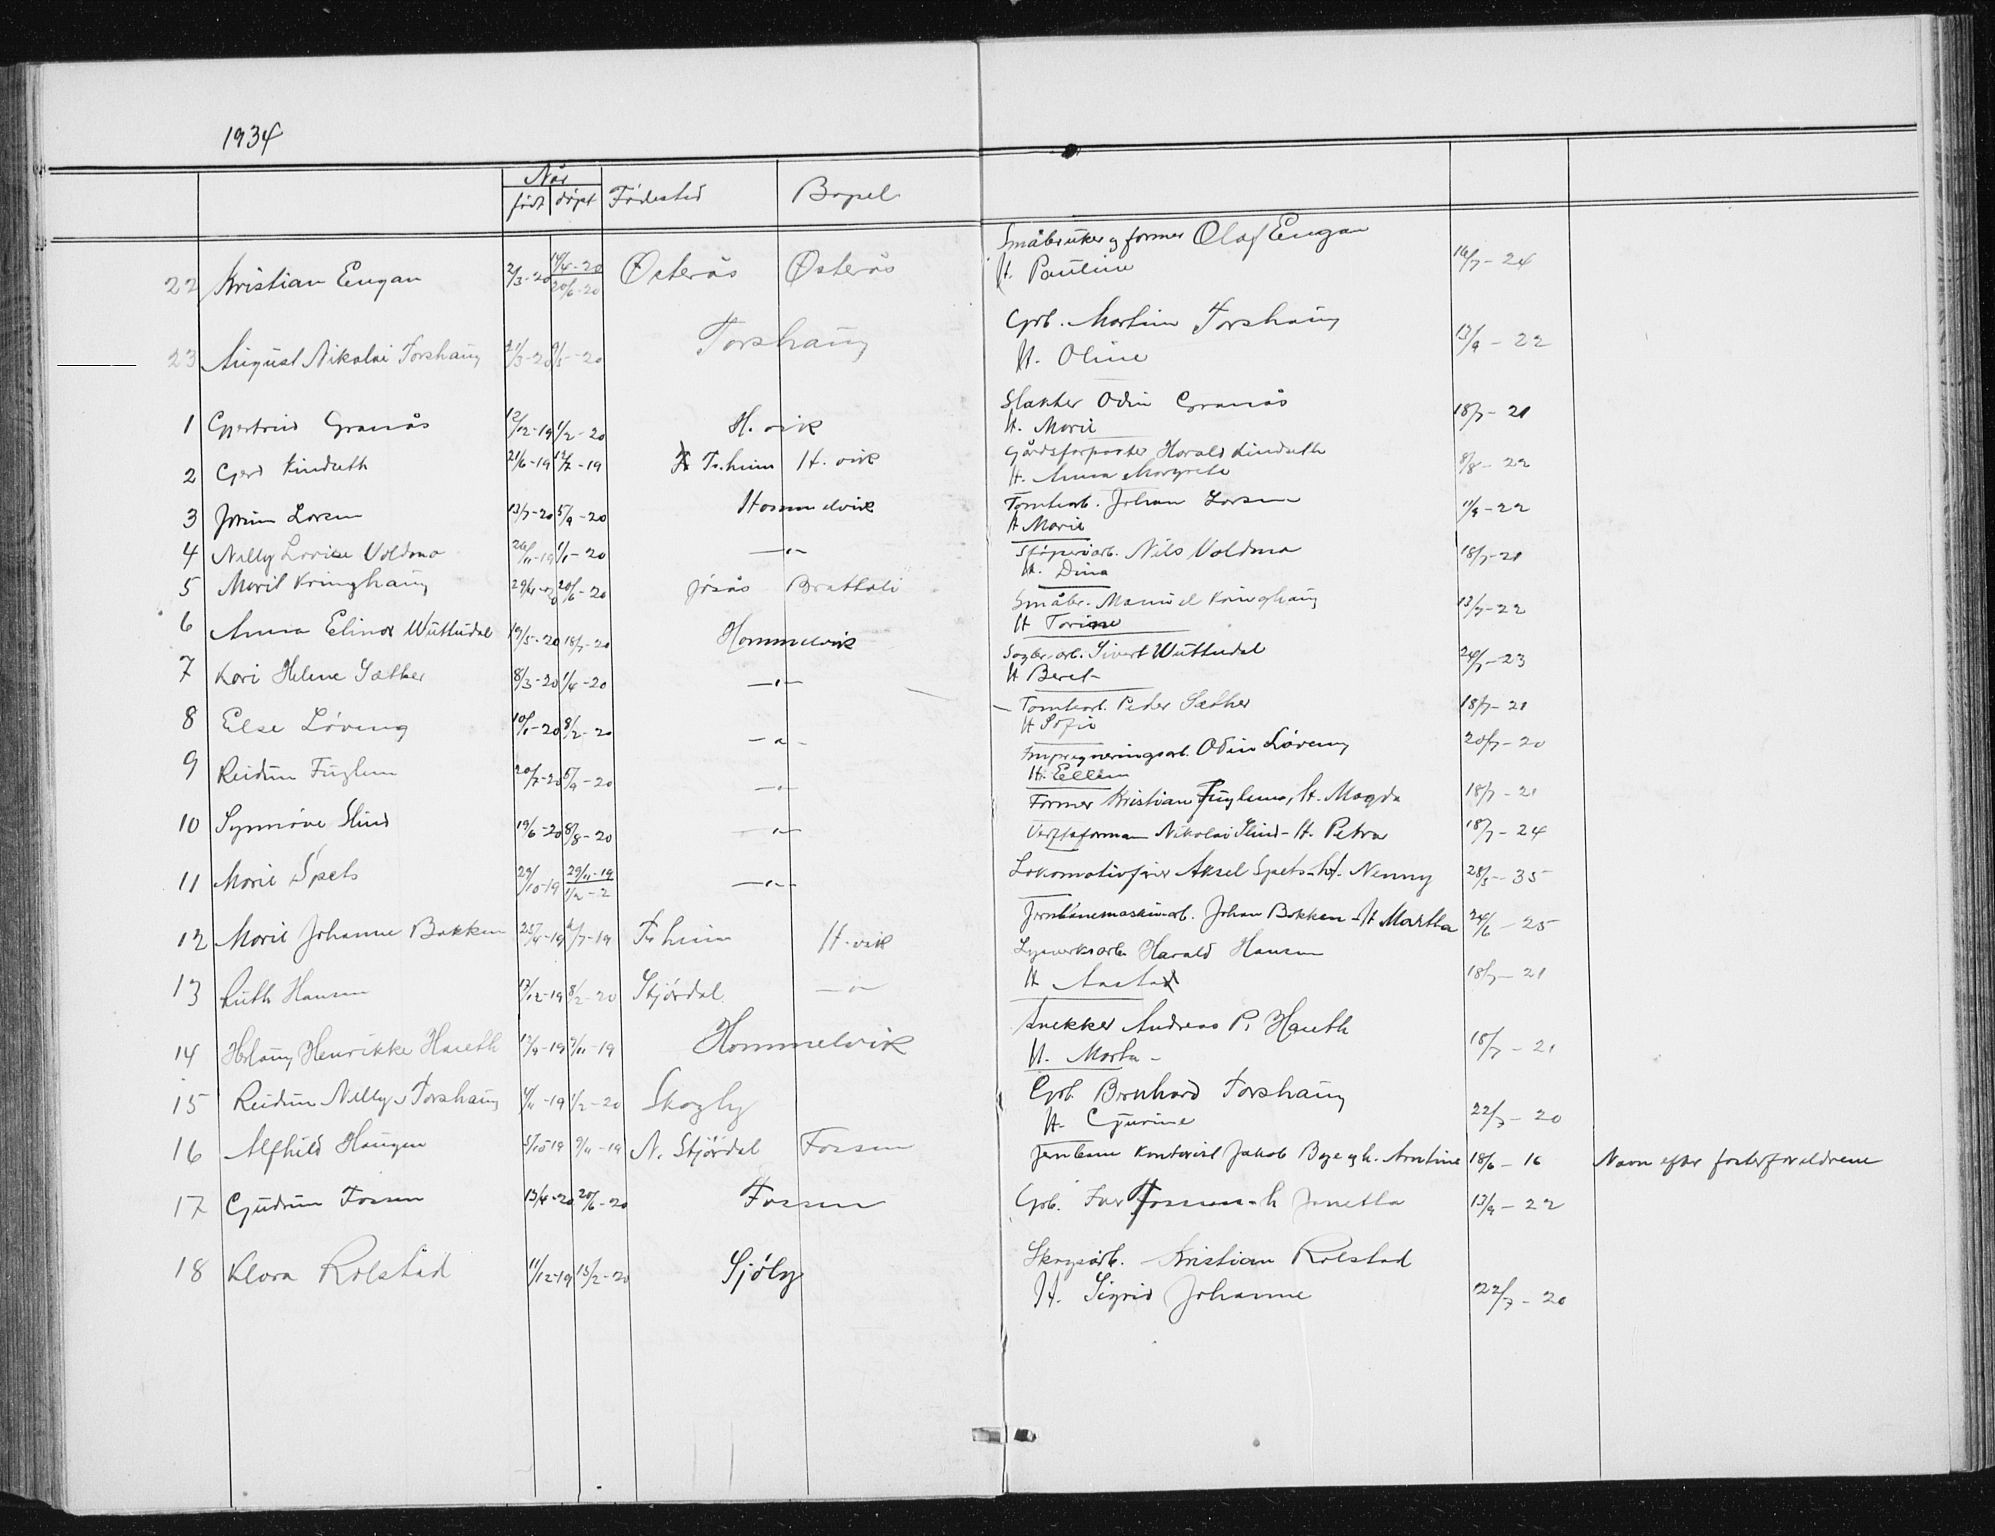 1934
Når
født døpt Fødested Bopel
22 Kristian Engan 2/3-20 14/4-20 20/6-20 Østerås Østerås Småbruker og former Olaf Engan 16/7-24
H. Pauline
23 August Nikolai Forshaug 21/3-20 9/5-20 Torshaug Grb. Martin Forshaug 13/9-22
H. Oline
1 Gjertrud Granås 12/12-19 1/2-20 H.vik Slakter Odin Granås 18/7-21
H. Marie
2 Gerd Kindseth 21/6-19 12/7-19 Tr.heim H.vik Gårdsforpakter Harald Kindseth 8/8-22
H. Anna Margrete
3 Jorun Larsen 13/7-20 5/9-20 Hommelvik Tomtearb. Johan Larsen 11/9-22
H Marie
4 Nelly Lovise Voldmo 26/11-19 1/1-20 —"— Støperiarb. Nils Voldmo 18/7-21
H. Dina
5 Marit Kringhaug 29/4-20 20/6-20 Jøsås Brattali Småbr. Manuel Kringhaug 13/7-22
H Torine
6 Anna Elinor Wuttudal 19/5-20 18/7-20 Hommelvik Sagbr.arb. Sivert Wuttudal 24/7-23
H Beret
7 Kari Helene Sæther 8/3-20 1/4-20 —"— Tomtearb. Peder Sæther 18/7-21
H Sofie
8 Else Løveng 10/1-20 8/2-20 —"— Impregneringsarb. Odin Løveng 20/7-20
H. Ellen
9 Reidun Fuglem 20/7-20 5/9-20 —"— Former Kristian Fuglem, H. Magda 18/7-21
10 Synnøve Slind 19/6-20 8/8-20 —"— Nikolai Slind - H. Petra 18/7-24
11 Marie Spets 29/10-19 29/11-19 1/2-2 —"— Lokomotivfører Aksel Spets - H. Nenny 28/5-35
12 Marie Johanne Bakken 25/4-19 6/7-19 Tr.heim H.vik Jernbanemaskinarb. Johan Bakken - H Martha 24/6-25
13 Ruth Hansen 17/12-19 8/2-20 Stjørdal —"— Lysverksarb. Harald Hansen 18/7-21
H Aasta
14 Herlaug Henrikke Haueth 17/9-19 9/11-19 Hommelvik Snekker Andreas P. Haueth 18/7-21
H. Marta -
15 Reidun Nelly Torshaug 4/11-19 1/2-20 Skogly Grb. Bernhard Torshaug 22/7-20
H. Gjurine
16 Alfhild Haugen 5/10-19 9/11-19 N. Stjørdal Fossen Jernbane Kontorist Jakob Bye og h. Arntine 18/6-16 Navn efter fosterforeldrene
17 Gudrun Fossen 13/4-20 20/6-20 Fossen Grb. Iver Fossen - h Janetta 13/9-22
18 Klara Rolstad 11/12-19 15/2-20 Sjøly Skogsarb. Kristian Rolstad
H. Sigrid Johanne 22/7-20